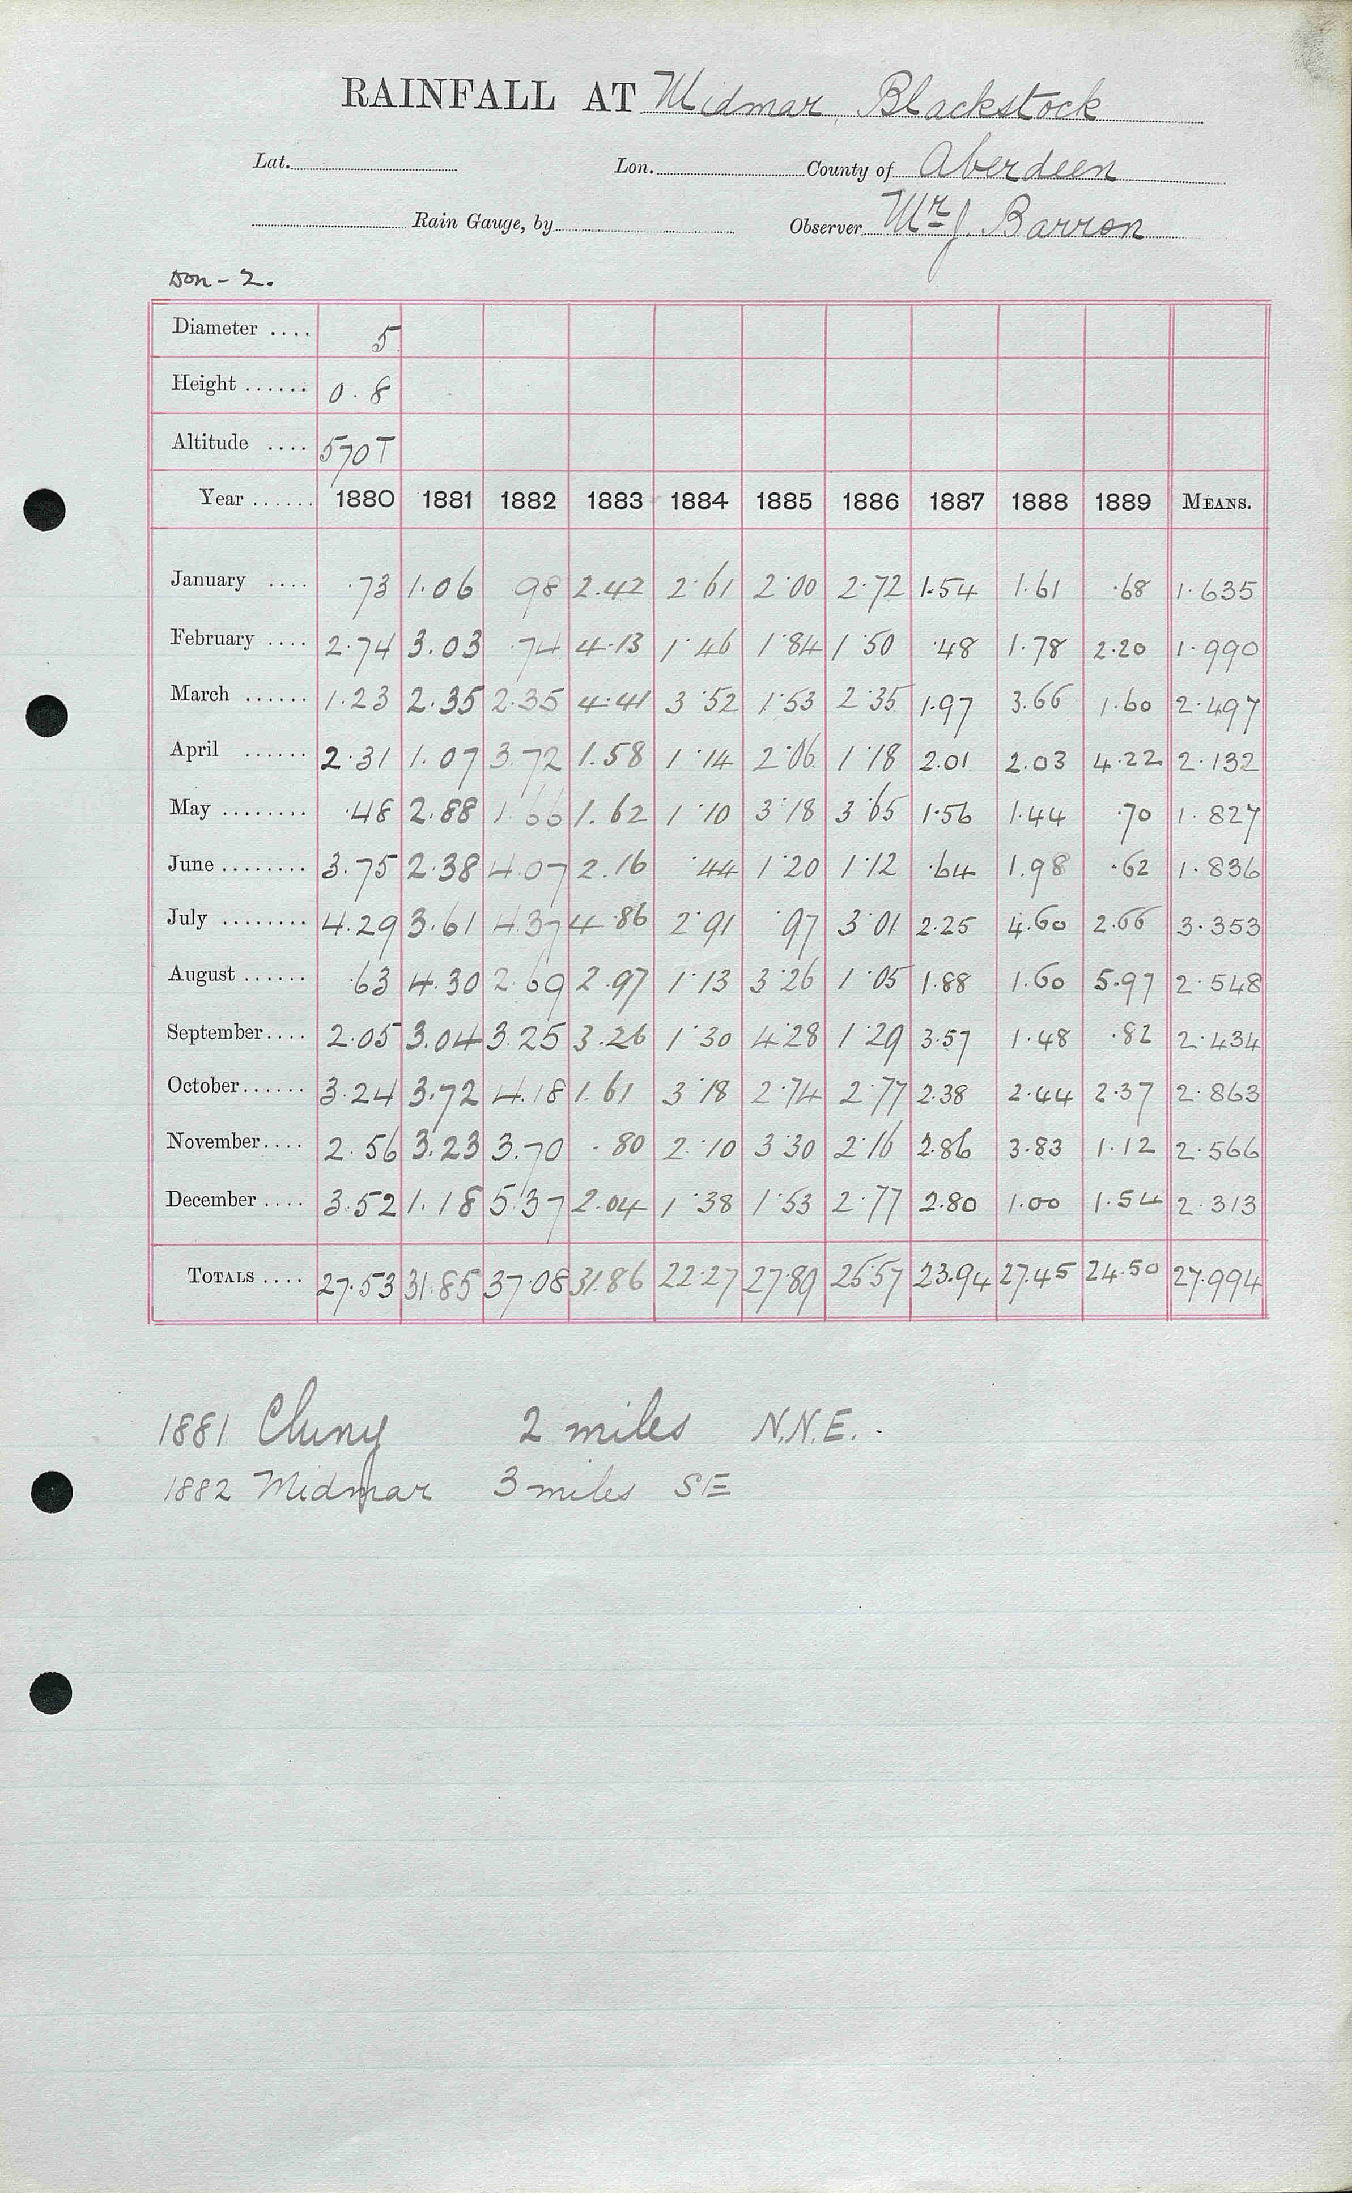 RAINFALL AT Midmar, Blackstock
Lat. Lon. County of Aberdeen
Rain Gauge, by Observer Mr J. Barron
Don - 2.
Diameter .... 5
Height ...... 0.8
Altitude .... 570T
Year ...... 1880 1881 1882 1883 1884 1885 1886 1887 1888 1889 MEANS.
January .... .73 1.06 .98 2.42 2.61 2.00 2.72 1.54 1.61 .68 1.635
February .... 2.74 3.03 .74 4.13 1.46 1.84 1.50 .48 1.78 2.20 1.990
March ...... 1.23 2.35 2.35 4.41 3.52 1.53 2.35 1.97 3.66 1.60 2.497
April ...... 2.31 1.07 3.72 1.58 1.14 2.06 1.18 2.01 2.03 4.22 2.132
May ........ .48 2.88 1.66 1.62 1.10 3.18 3.65 1.56 1.44 .70 1.827
June ........ 3.75 2.38 4.07 2.16 .44 1.20 1.12 .64 1.98 .62 1.836
July ........ 4.29 3.61 4.37 4.86 2.91 .97 3.01 2.25 4.60 2.66 3.353
August ...... .63 4.30 2.69 2.97 1.13 3.26 1.05 1.88 1.60 5.97 2.548
September .... 2.05 3.04 3.25 3.26 1.30 4.28 1.29 3.57 1.48 .82 2.434
October ...... 3.24 3.72 4.18 1.61 3.18 2.74 2.77 2.38 2.44 2.37 2.863
November .... 2.56 3.23 3.70 .80 2.10 3.30 2.16 2.86 3.83 1.12 2.566
December .... 3.52 1.18 5.37 2.04 1.38 1.53 2.77 2.80 1.00 1.54 2.313
TOTALS .... 27.53 31.85 37.08 31.86 22.27 27.89 25.57 23.94 27.45 24.50 27.994
1881 Cluny 2 miles N.N.E.
1882 Midmar 3 miles SE